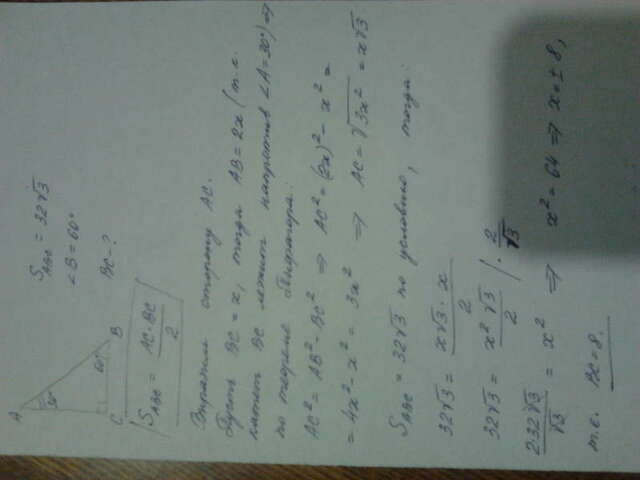 A
30°
60°
C
B
S_ABC = 32√3
∠B = 60°
BC - ?
S_ABC = AC · BC / 2
Выразим сторону AC.
Пусть BC = x, тогда AB = 2x (т.к.
катет BC лежит напротив ∠A = 30°) ⇒
по теореме Пифагора:
AC² = AB² - BC² ⇒ AC² = (2x)² - x² =
= 4x² - x² = 3x² ⇒ AC = √3x² = x√3
S_ABC = 32√3 по условию, тогда:
32√3 = x√3 · x / 2
32√3 = x²√3 / 2 | · 2/√3
2·32√3 / √3 = x² ⇒ x² = 64 ⇒ x = ± 8,
т.е. BC = 8.